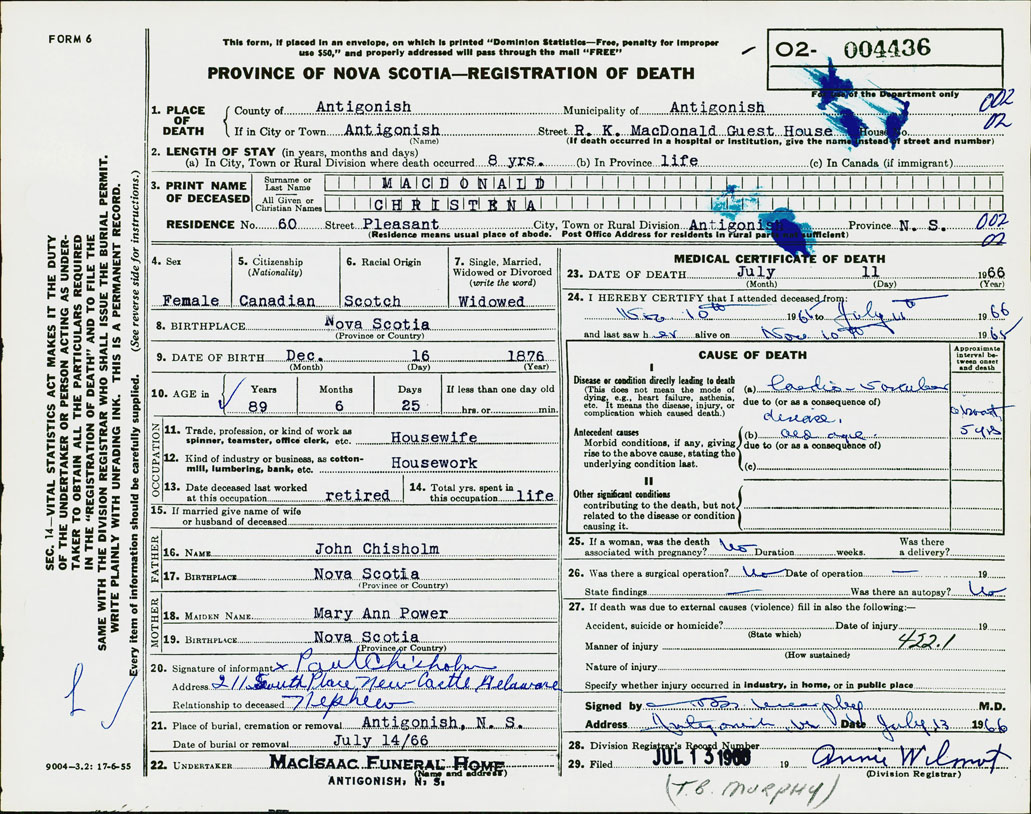 FORM 6
This form, if placed in an envelope, on which is printed "Dominion Statistics—Free, penalty for improper
use $50," and properly addressed will pass through the mail "FREE"
PROVINCE OF NOVA SCOTIA—REGISTRATION OF DEATH
02- 004436
For use of the Department only
1. PLACE OF DEATH
County of Antigonish Municipality of Antigonish 002
If in City or Town Antigonish Street R. K. MacDonald Guest House House No. 02
(Name) (If death occurred in a hospital or institution, give the name instead of street and number)
2. LENGTH OF STAY (in years, months and days)
(a) In City, Town or Rural Division where death occurred 8 yrs. (b) In Province life (c) In Canada (if immigrant)
3. PRINT NAME OF DECEASED
Surname or Last Name MACDONALD
All Given or Christian Names CHRISTENA
RESIDENCE No. 60 Street Pleasant City, Town or Rural Division Antigonish Province N. S. 002
(Residence means usual place of abode. Post Office Address for residents in rural parts not sufficient) 02
4. Sex Female
5. Citizenship (Nationality) Canadian
6. Racial Origin Scotch
7. Single, Married, Widowed or Divorced (write the word) Widowed
8. BIRTHPLACE Nova Scotia
(Province or Country)
9. DATE OF BIRTH Dec. 16 1876
(Month) (Day) (Year)
10. AGE in Years 89 Months 6 Days 25 If less than one day old hrs. or min.
OCCUPATION
11. Trade, profession, or kind of work as spinner, teamster, office clerk, etc. Housewife
12. Kind of industry or business, as cotton-mill, lumbering, bank, etc. Housework
13. Date deceased last worked at this occupation retired
14. Total yrs. spent in this occupation life
15. If married give name of wife or husband of deceased
FATHER
16. NAME John Chisholm
17. BIRTHPLACE Nova Scotia
(Province or Country)
MOTHER
18. MAIDEN NAME Mary Ann Power
19. BIRTHPLACE Nova Scotia
(Province or Country)
20. Signature of informant x Paul Chisholm
Address 211 South Place New Castle Delaware
Relationship to deceased Nephew
21. Place of burial, cremation or removal Antigonish, N. S.
Date of burial or removal July 14/66
22. UNDERTAKER MACISAAC FUNERAL HOME
(Name and address)
ANTIGONISH, N. S.
MEDICAL CERTIFICATE OF DEATH
23. DATE OF DEATH July 11 1966
(Month) (Day) (Year)
24. I HEREBY CERTIFY that I attended deceased from:
Nov 10th 1965 to July 11th 1966
and last saw her alive on Nov 10th 1965
CAUSE OF DEATH
Approximate interval between onset and death
I
Disease or condition directly leading to death
(This does not mean the mode of dying, e.g., heart failure, asthenia, etc. It means the disease, injury, or complication which caused death.)
(a) Cardio-Vascular
due to (or as a consequence of)
disease.
about 5 yrs
Antecedent causes
Morbid conditions, if any, giving rise to the above cause, stating the underlying condition last.
(b) old age.
due to (or as a consequence of)
(c)
II
Other significant conditions
contributing to the death, but not related to the disease or condition causing it.
25. If a woman, was the death associated with pregnancy? No Duration weeks. Was there a delivery?
26. Was there a surgical operation? No Date of operation — 19
State findings — Was there an autopsy? No
27. If death was due to external causes (violence) fill in also the following:—
Accident, suicide or homicide? Date of injury 19
(State which)
Manner of injury 422.1
(How sustained)
Nature of injury
Specify whether injury occurred in industry, in home, or in public place
Signed by Murphy M.D.
Address Antigonish NS Date July 13 1966
28. Division Registrar's Record Number
29. Filed JUL 13 1966 19 Annie Wilmot
(Division Registrar)
(T.B. MURPHY)
SEC. 14—VITAL STATISTICS ACT MAKES IT THE DUTY
OF THE UNDERTAKER OR PERSON ACTING AS UNDER-
TAKER TO OBTAIN ALL THE PARTICULARS REQUIRED
IN THE "REGISTRATION OF DEATH" AND TO FILE THE
SAME WITH THE DIVISION REGISTRAR WHO SHALL ISSUE THE BURIAL PERMIT.
WRITE PLAINLY WITH UNFADING INK. THIS IS A PERMANENT RECORD.
Every item of information should be carefully supplied. (See reverse side for instructions.)
9004—3.2: 17-6-55